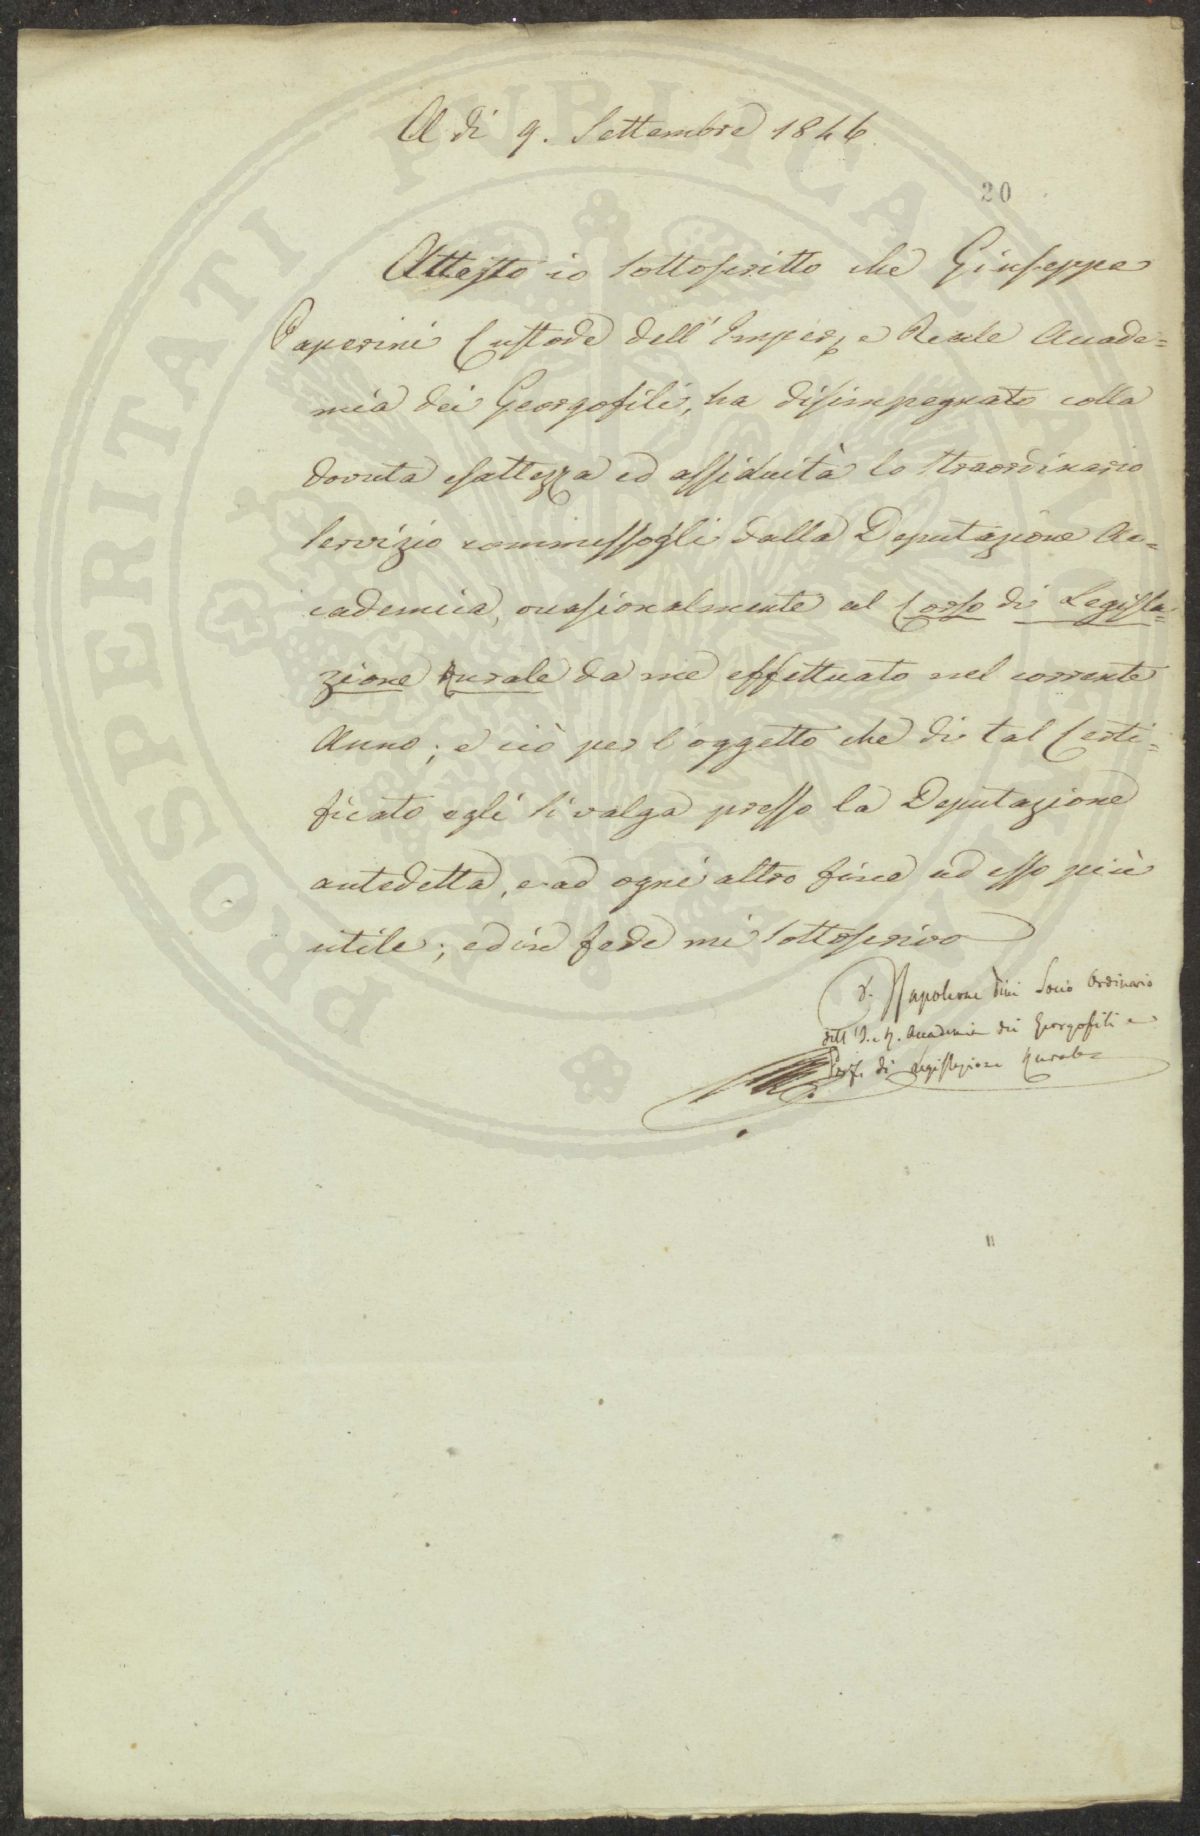 A dì 9. Settembre 1846
20
Attesto io sottoscritto che Giuseppe
Paperini Custode dell' Imper. e Reale Accade=
mia dei Georgofili, ha disimpegnato colla
dovuta esattezza ed assiduità lo straordinario
servizio commessogli dalla Deputazione Ac=
cademica, occasionalmente al Corso di Legisla=
zione Rurale da me effettuato nel corrente
Anno; e ciò per l'oggetto che di tal Certi=
ficato egli si valga presso la Deputazione
antedetta, e ad ogni altro fine ad esso più
utile; ed in fede mi sottoscrivo
D. Napoleone Pini Socio Ordinario
dell' I. e R. Accademia dei Georgofili e
Prof. di Legislazione Rurale
PROSPERITATI PUBLICAE AUGENDAE